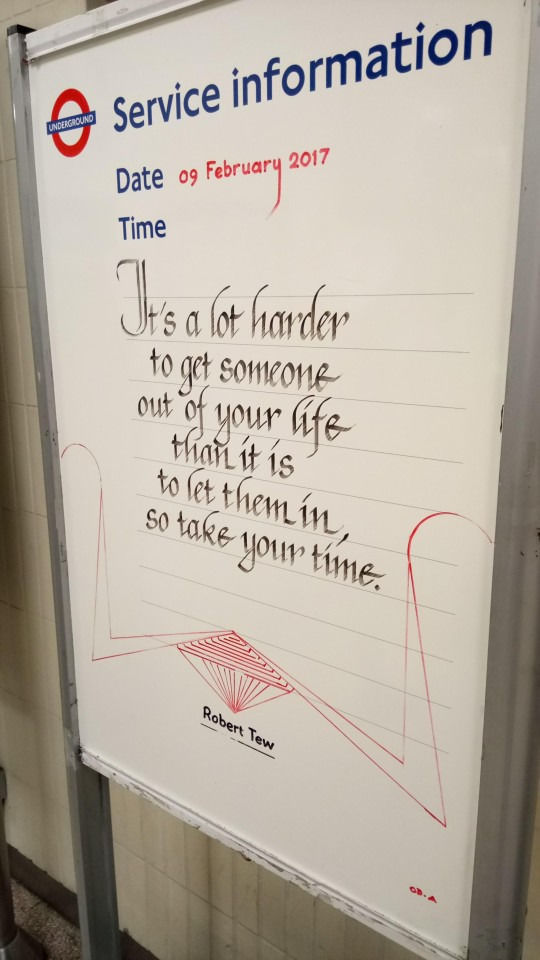 UNDERGROUND
Service information
Date 09 February 2017
Time
It's a lot harder
to get someone
out of your life
than it is
to let them in,
so take your time.
Robert Tew
OB.A